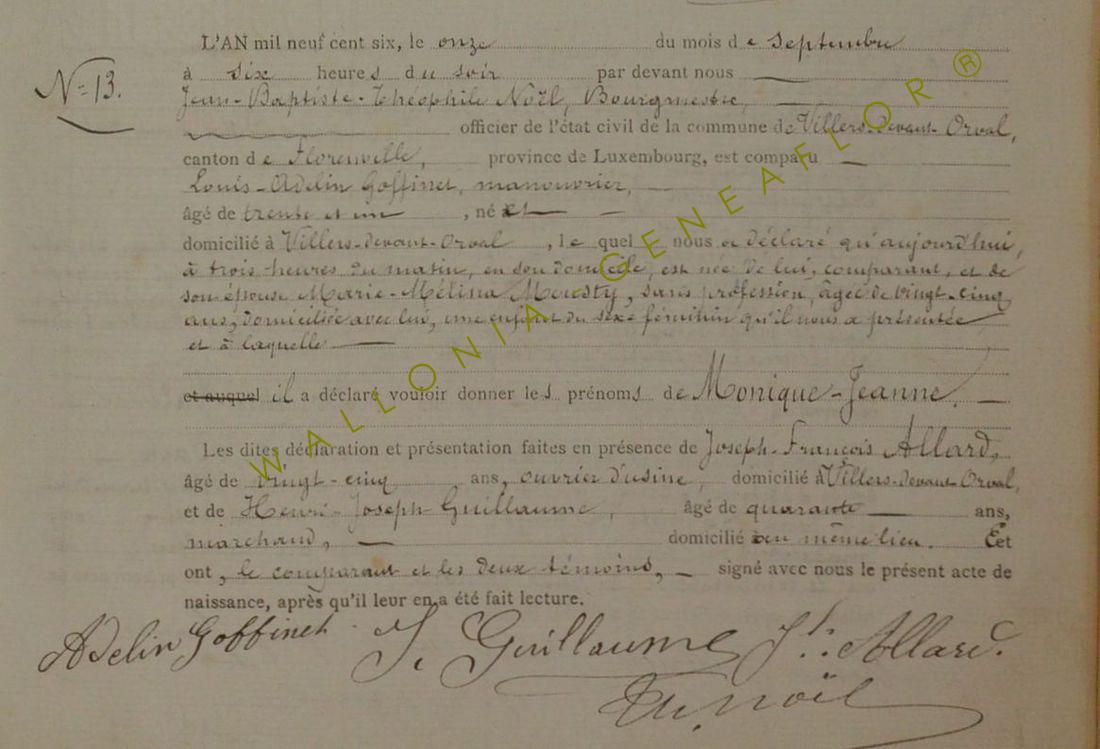 L'AN mil neuf cent six, le onze du mois de septembre
N° 13.
à six heures du soir par devant nous
Jean-Baptiste-Théophile Noël, Bourgmestre,
officier de l'état civil de la commune de Villers-devant-Orval,
canton de Florenville, province de Luxembourg, est comparu
Louis-Adelin Goffinet, manouvrier,
âgé de trente et un, né
domicilié à Villers-devant-Orval, lequel nous a déclaré qu'aujourd'hui,
à trois heures du matin, en son domicile, est née de lui, comparant, et de
son épouse Marie-Mélina Mousty, sans profession, âgée de vingt-cinq
ans, domiciliée avec lui, une enfant du sexe féminin qu'il nous a présentée
et à laquelle
et auquel il a déclaré vouloir donner les prénoms de Monique-Jeanne.
Les dites déclaration et présentation faites en présence de Joseph-François Allard,
âgé de vingt-cinq ans, ouvrier d'usine, domicilié à Villers-devant-Orval,
et de Henri-Joseph Guillaume, âgé de quarante ans,
marchand, domicilié au même lieu. Et
ont, le comparant et les deux témoins, signé avec nous le présent acte de
naissance, après qu'il leur en a été fait lecture.
Adelin Goffinet J. Guillaume Jh. Allard.
Th. Noël
WALLONIA-GENEAFLOR ®